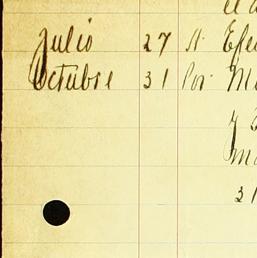 el a
Julio 27 A Efe
Octubre 31 Por M
y
m
31